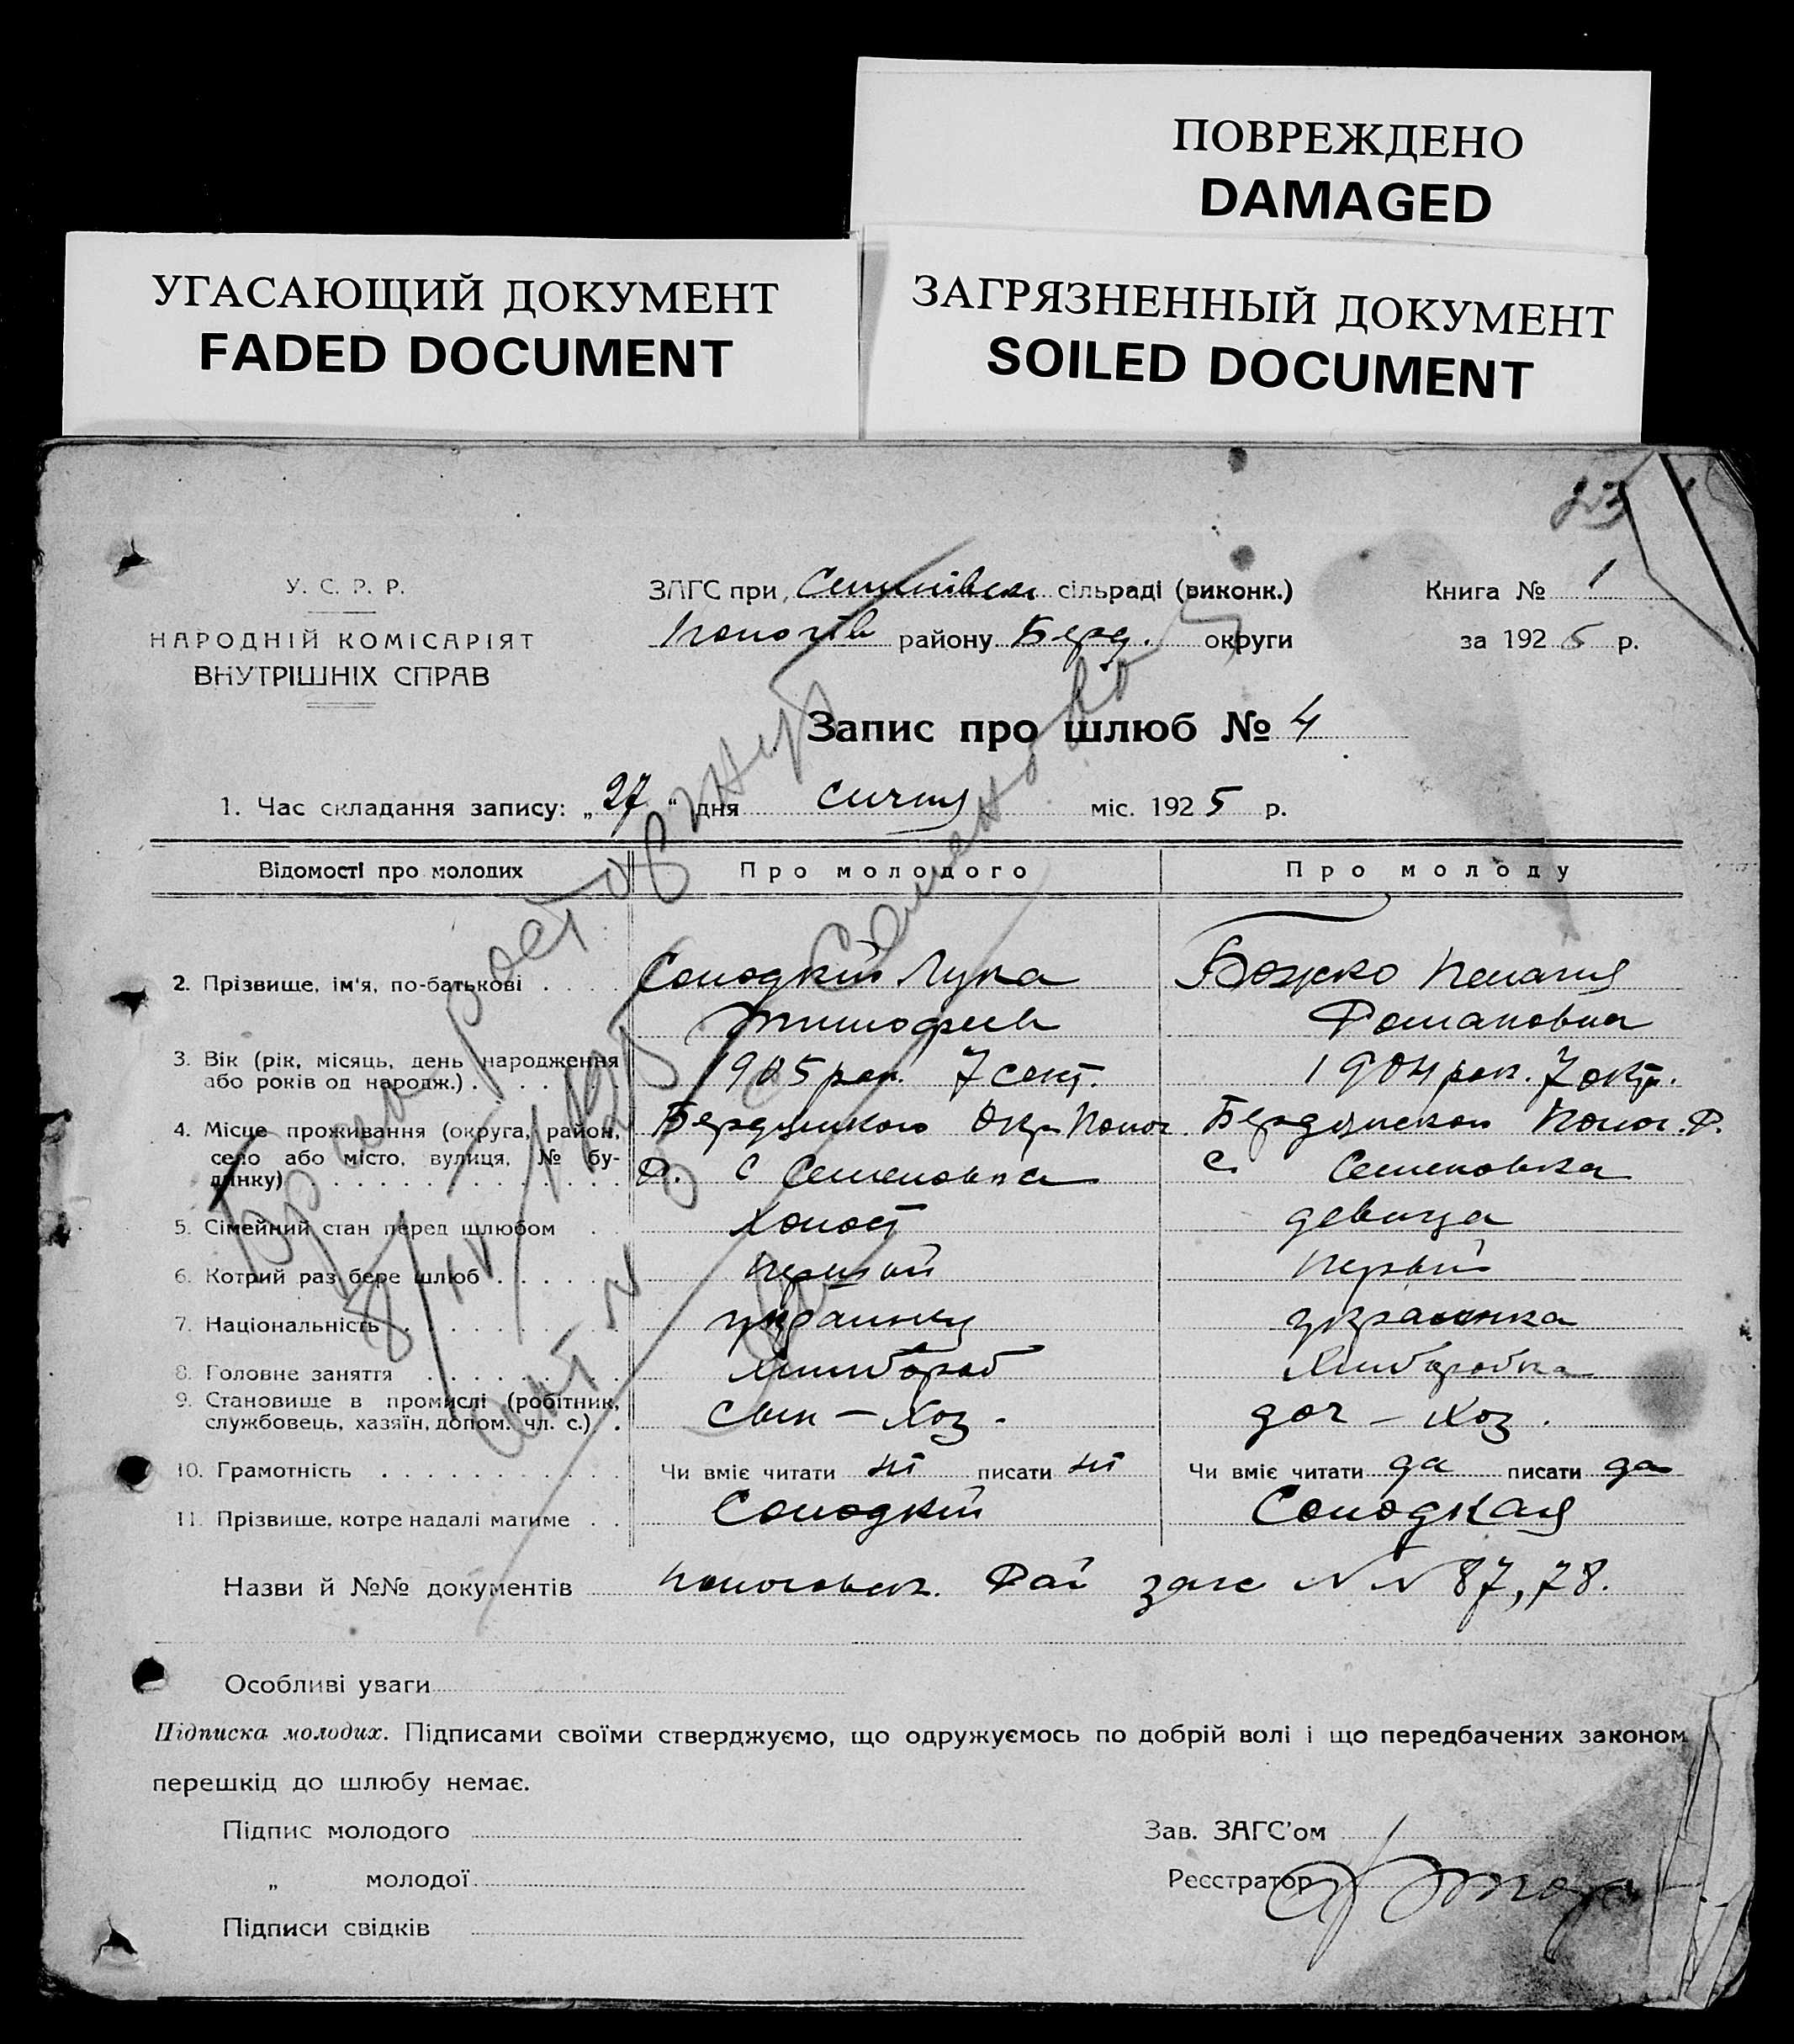 ПОВРЕЖДЕНО
DAMAGED
УГАСАЮЩИЙ ДОКУМЕНТ
FADED DOCUMENT
ЗАГРЯЗНЕННЫЙ ДОКУМЕНТ
SOILED DOCUMENT
23
У. С. Р. Р.
НАРОДНІЙ КОМІСАРІЯТ
ВНУТРІШНІХ СПРАВ
ЗАГС при сільраді (виконк.)
Пологів району Берд. округи
Книга № 1
за 1925 р.
Запис про шлюб № 4
1. Час складання запису: „27“ дня січня міс. 1925 р.
Відомості про молодих Про молодого Про молоду
2. Прізвище, ім'я, по-батькові . . . . Солодкій Лука Божко Пелагия
Тимофеев Романовна
3. Вік (рік, місяць, день народження або років од народж.) . . . . . 1905 рок. 7 сент. 1904 рок. 7 окт.
4. Місце проживання (округа, район, село або місто, вулиця, № будинку) . . . Бердянского Окр Полог. Р. с Семеновка Бердянского Полог. Р. с. Семеновка
5. Сімейний стан перед шлюбом . . Холост девица
6. Котрий раз бере шлюб . . . . . Первый
7. Національність . . . . . . . украинец украинка
8. Головне заняття . . . . . . . Хлибороб Хлиборобка
9. Становище в промислі (робітник, службовець, хазяїн, допом. чл. с.) . . сын – хоз. доч – хоз.
10. Грамотність . . . . . . . . Чи вміє читати ні писати ні Чи вміє читати да писати да
11. Прізвище, котре надалі матиме . . Солодкій Солодкая
Назви й №№ документів Пологовск. Рай загс N N 87, 78.
Особливі уваги
Підписка молодих. Підписами своїми стверджуємо, що одружуємось по добрій волі і що передбачених законом
перешкід до шлюбу немає.
Підпис молодого
„ молодої
Підписи свідків
Зав. ЗАГС'ом
Реєстратор
Брак расторгнут
Семеновка